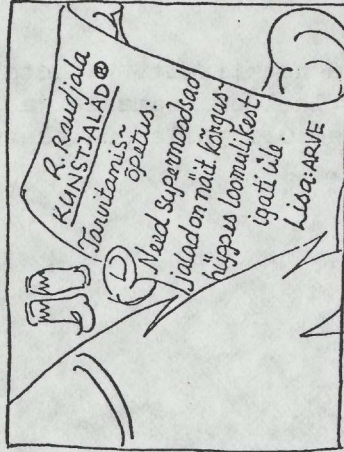 R. Raudjala
KUNSTJALAD ®
Tarvitamis~
õpetus:
Need Supermoodsad
jalad on näit kõrgus~
hüppes loomulikest
igati üle.
Lisa: ARVE